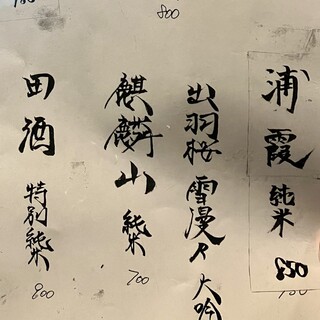 浦霞 純米 850
出羽桜 雪漫々 大吟
麒麟山 純米 700
田酒 特別純米 800
800